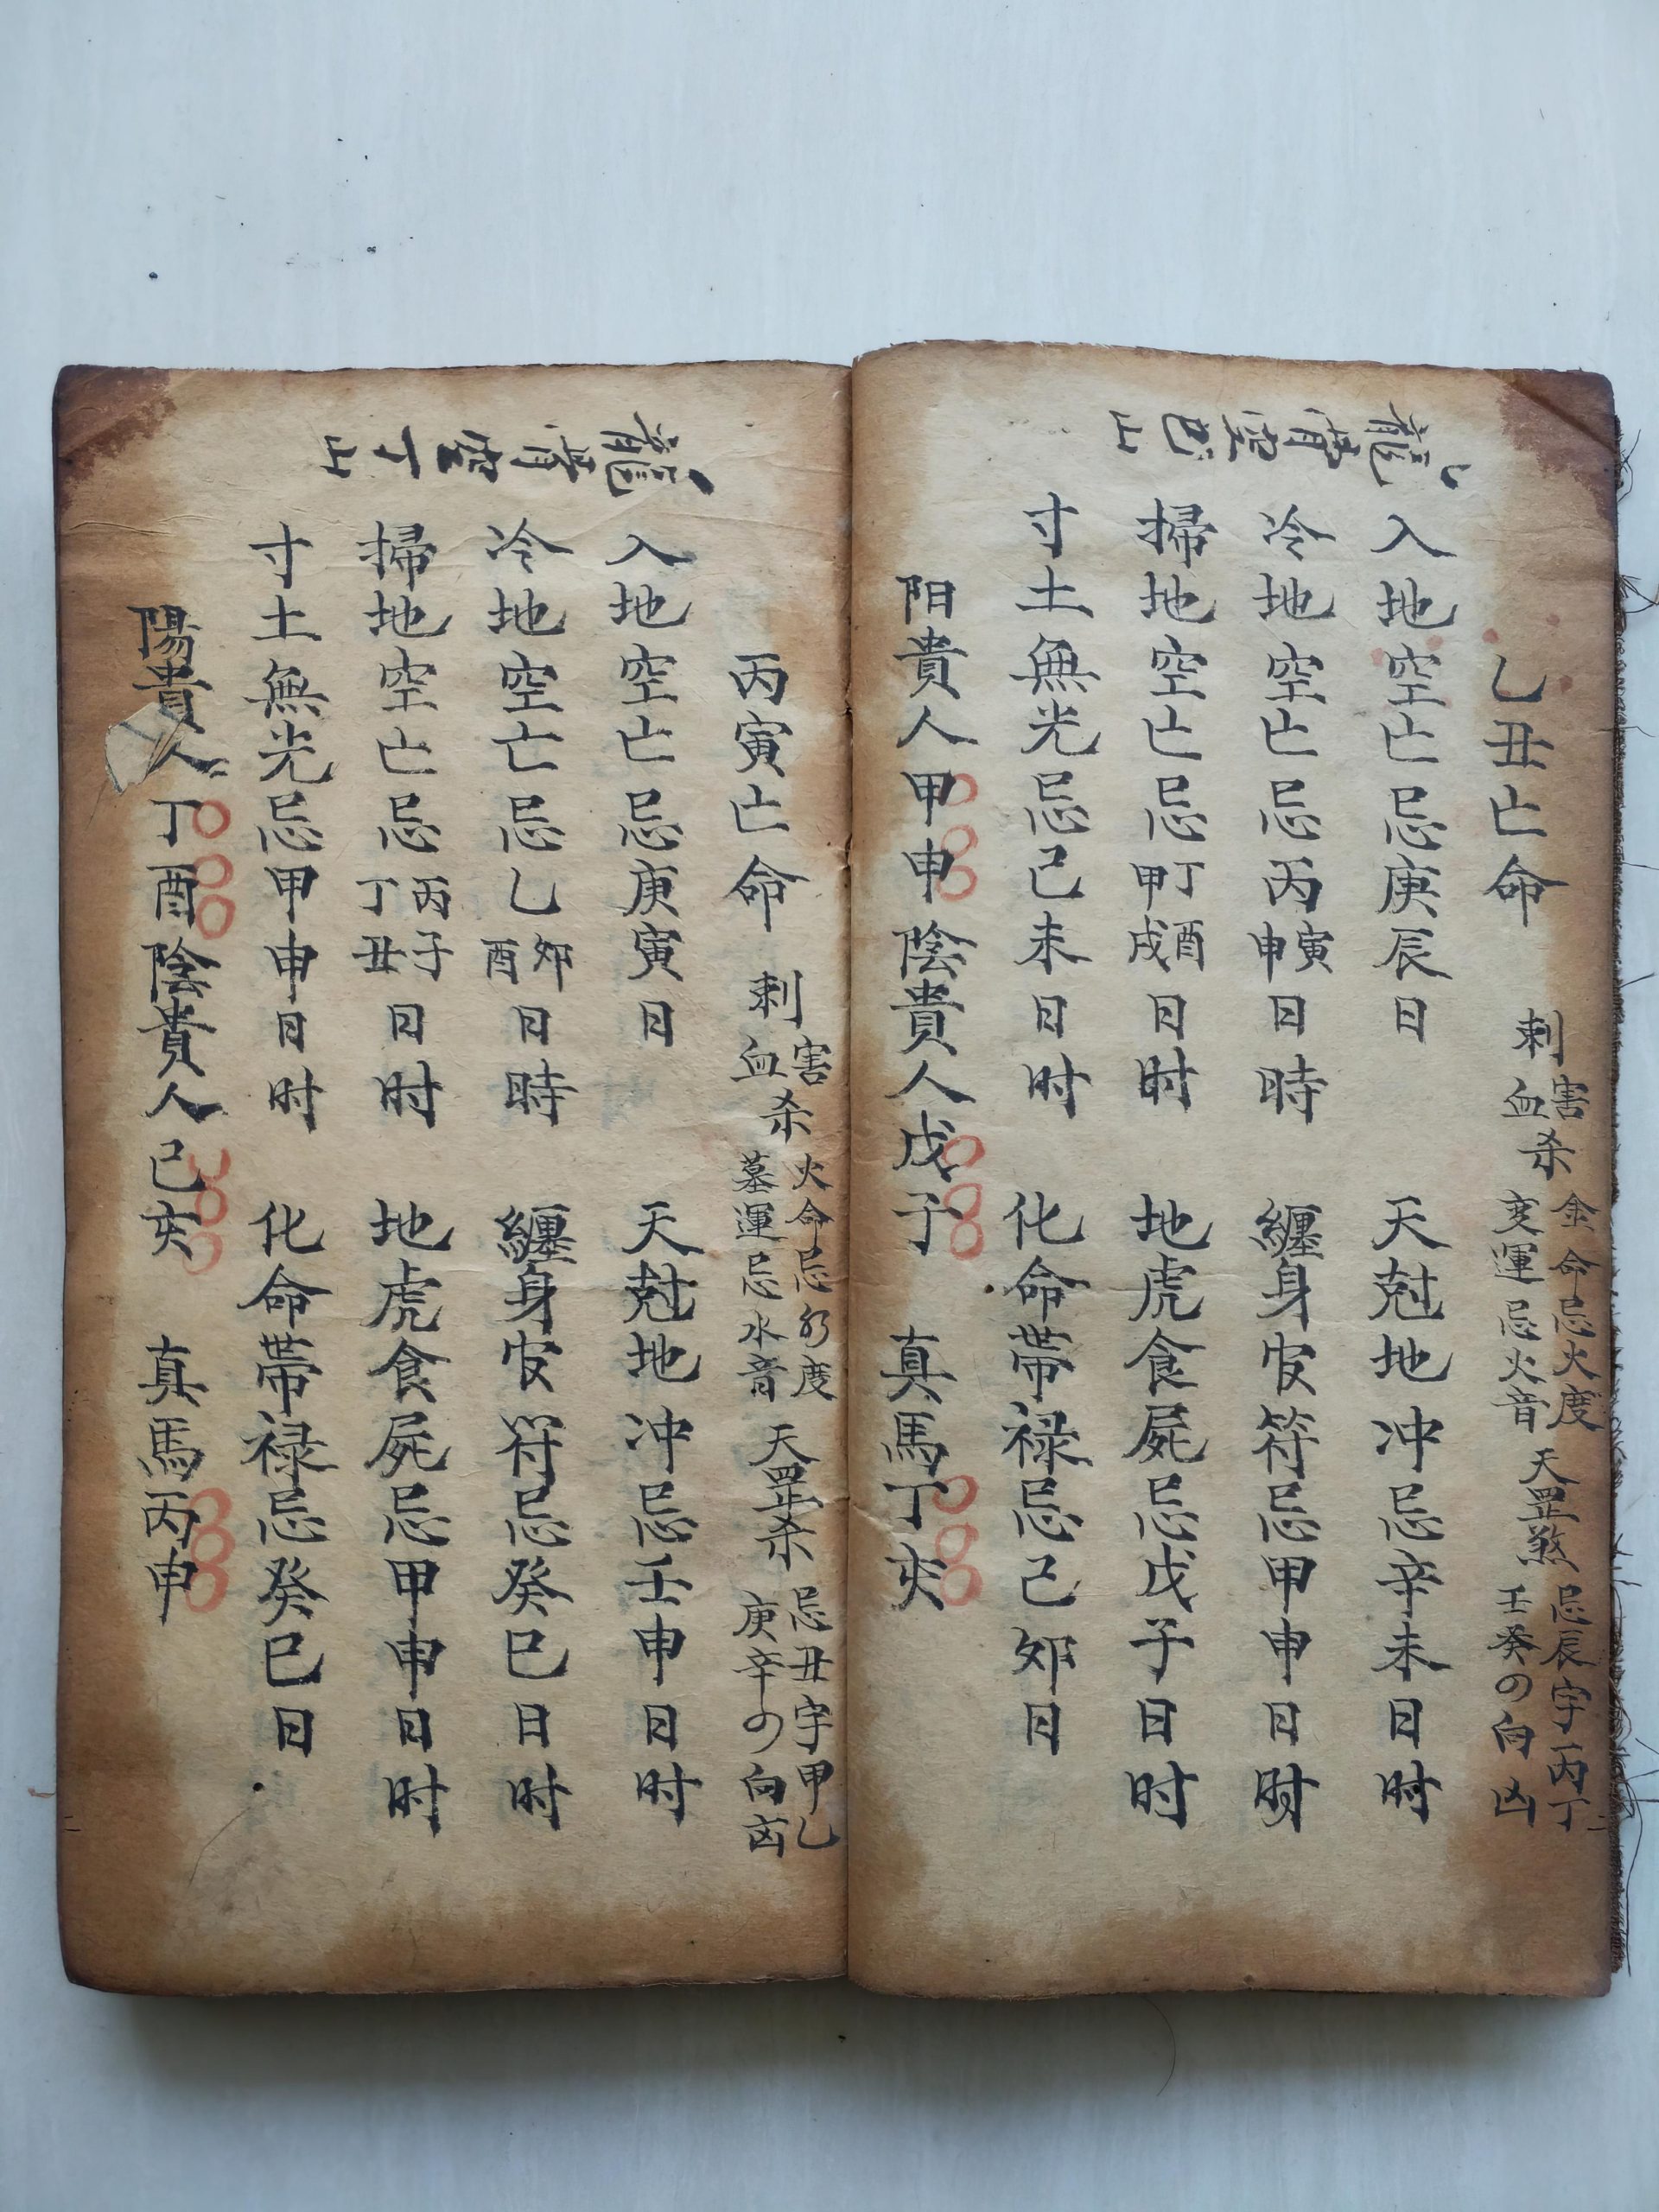 乙丑亡命 刺血害杀 金命忌火度 变運忌火音 天罡煞 忌辰字丙丁 壬癸の向凶
入地空亡忌庚辰日 天尅地冲忌辛未日时
冷地空亡忌丙寅申日時 纏身安符忌甲申日时
掃地空亡忌丁酉甲戌日时 地虎食屍忌戊子日时
寸土無光忌己未日时 化命帶禄忌己夘日
阳貴人甲申 陰貴人戊子 真馬丁亥
丙寅亡命 刺血害杀 火命忌水度 墓運忌水音 天罡杀 忌丑字甲乙 庚辛の向凶
入地空亡忌庚寅日 天尅地冲忌壬申日时
冷地空亡忌乙夘酉日時 纏身安符忌癸巳日时
掃地空亡忌丙子丁丑日时 地虎食屍忌甲申日时
寸土無光忌甲申日时 化命帶禄忌癸巳日
陽貴人丁酉 陰貴人己亥 真馬丙申